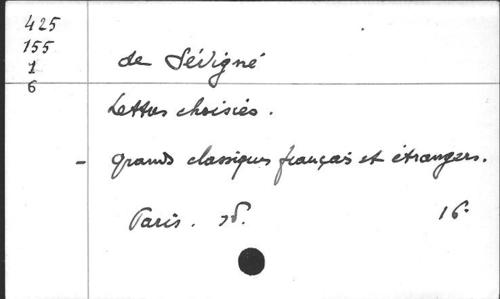 425
155
1
6
de Sévigné
Lettres choisies.
- grands classiques français et étrangers.
Paris. sd. 16°